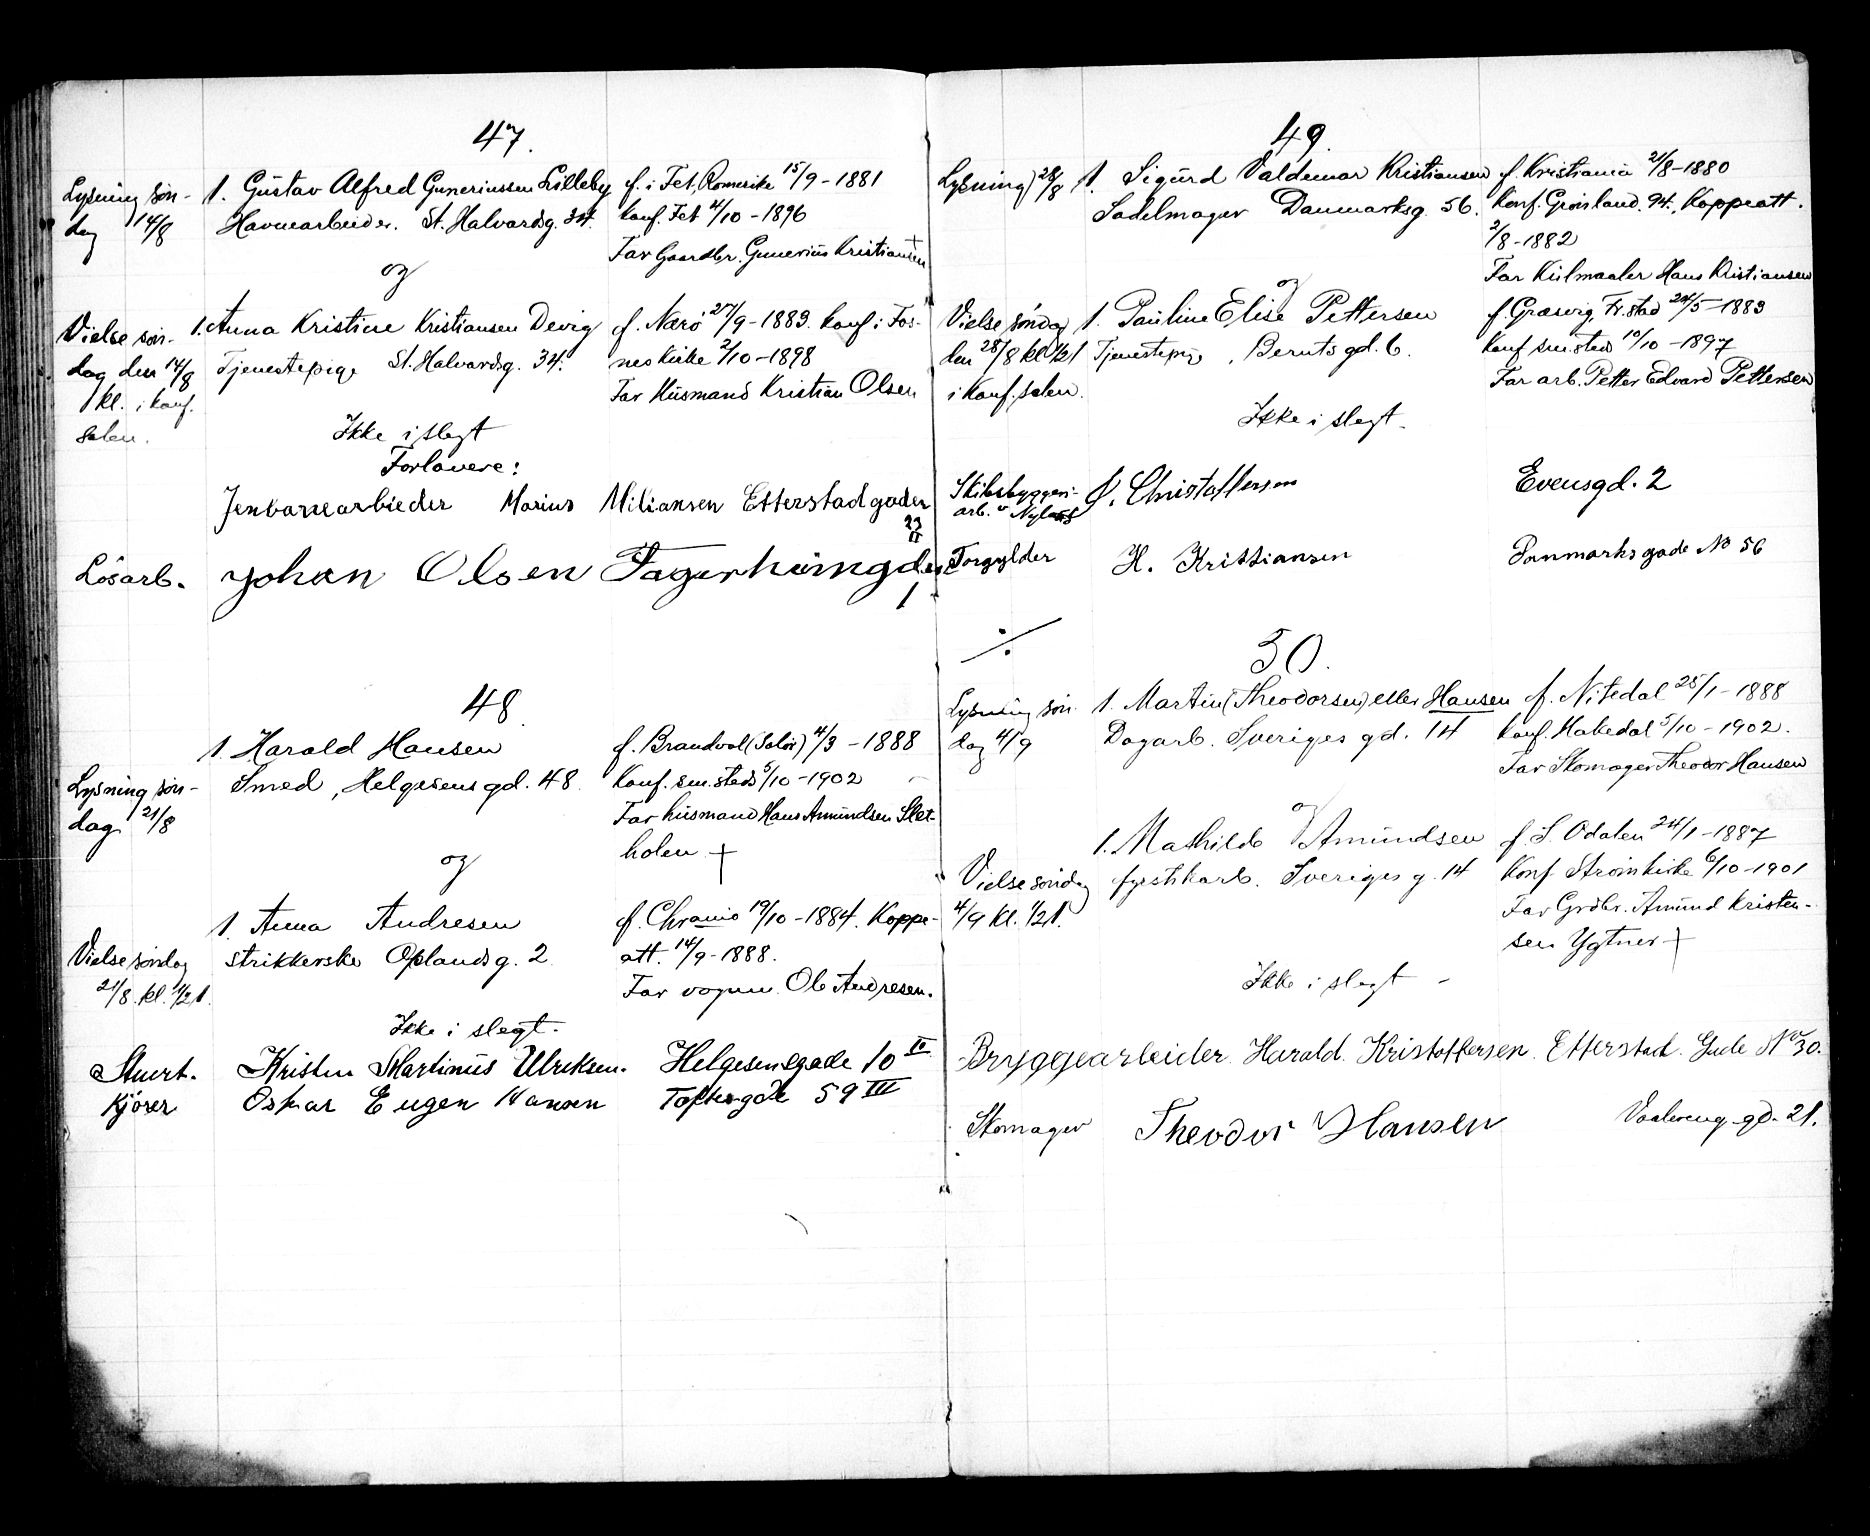 47.
Lysning søn-
dag 14/8
1. Gustav Alfred Guneriussen Lilleby
Havnearbeider. St. Halvardsg. 34.
f. i Fet, Romerike 15/9 - 1881
Konf. Fet 4/10 - 1896
Far Gaardbr. Gunerius Kristiansen +
og
Vielse søn-
dag den 14/8
1 kl. i konf.
salen.
1. Anna Kristine Kristiansen Devig
Tjenestepige St. Halvardsg. 34.
f. Nærø 27/9 - 1883. konf. i Fos-
nes kirke 2/10 - 1898
Far Husmand Kristian Olsen
Ikke i slegt
Forlovere:
Jenbanearbieder Marius Miliansen Etterstadgaden
23
II
Lösarb. Johan Olsen Fagerheimgden
1
48
Lysning søn-
dag 21/8
1. Harald Hansen
Smed, Helgesens gd. 48
f. Brandvol (Solør) 4/3 - 1888
Konf. sm. steds 5/10 - 1902
Far husmand Hans Amundsen Slet-
holen +
og
Vielse søndag
21/8. kl. 1/2 1.
1. Anna Andresen
strikkerske Oplandsg. 2
f. Chrania 19/10 - 1884. Koppe-
att. 14/9 - 1888.
Far vognm. Ole Andresen.
Ikke i slegt.
Stuert. Kristen Martinus Ulriksen. Helgesensgade 10 IV
Kjörer Oskar Eugen Hansen Toftesgde 59 III
49.
Lysning 28/8
1. Sigurd Valdemar Kristiansen
Sadelmager Danmarksg. 56.
f. Kristiania 21/8 - 1880
Konf. Grønland. 94., Koppeatt.
2/8 - 1882
Far Kulmaaler Hans Kristiansen
og
Vielse søndag
den 28/8 kl 1/2 1
i Konf. salen.
1. Pauline Elise Pettersen
Tjenestepig, Bernts gd. 6.
f. Græsvig Fr.stad 24/5 - 1883
Konf sm. sted 10/10 - 1897
Far arb. Petter Edvard Pettersen
Ikke i slegt.
Skibsbyggeri-
arb. v Nyland
J. Christoffersen Evensgd. 2
Forgylder H. Kristiansen Danmarks gade No 56
÷
50.
Lysning søn-
dag 4/9
1. Martin (Theodorsen) eller Hansen
Dagarb. Sveriges gd. 14
f. Nitedal 25/1 - 1888
Konf. Hakedal 5/10 - 1902.
Far Skomager Theodor Hansen
og
Vielse søndag
4/9 kl. 1/2 1.
1. Mathilde Amundsen
fyrstikarb. Sveriges g. 14
f. S. Odalen 24/1 - 1887
Konf Strømkirke 6/10 - 1901
Far Grdbr. Amund Kristen-
sen Ygtner +
Ikke i slegt -
Bryggearbeider. Harald. Kristoffersen. Etterstad. Gade No 30.
Skomager Theodor Hansen Vaalereng gd. 21.